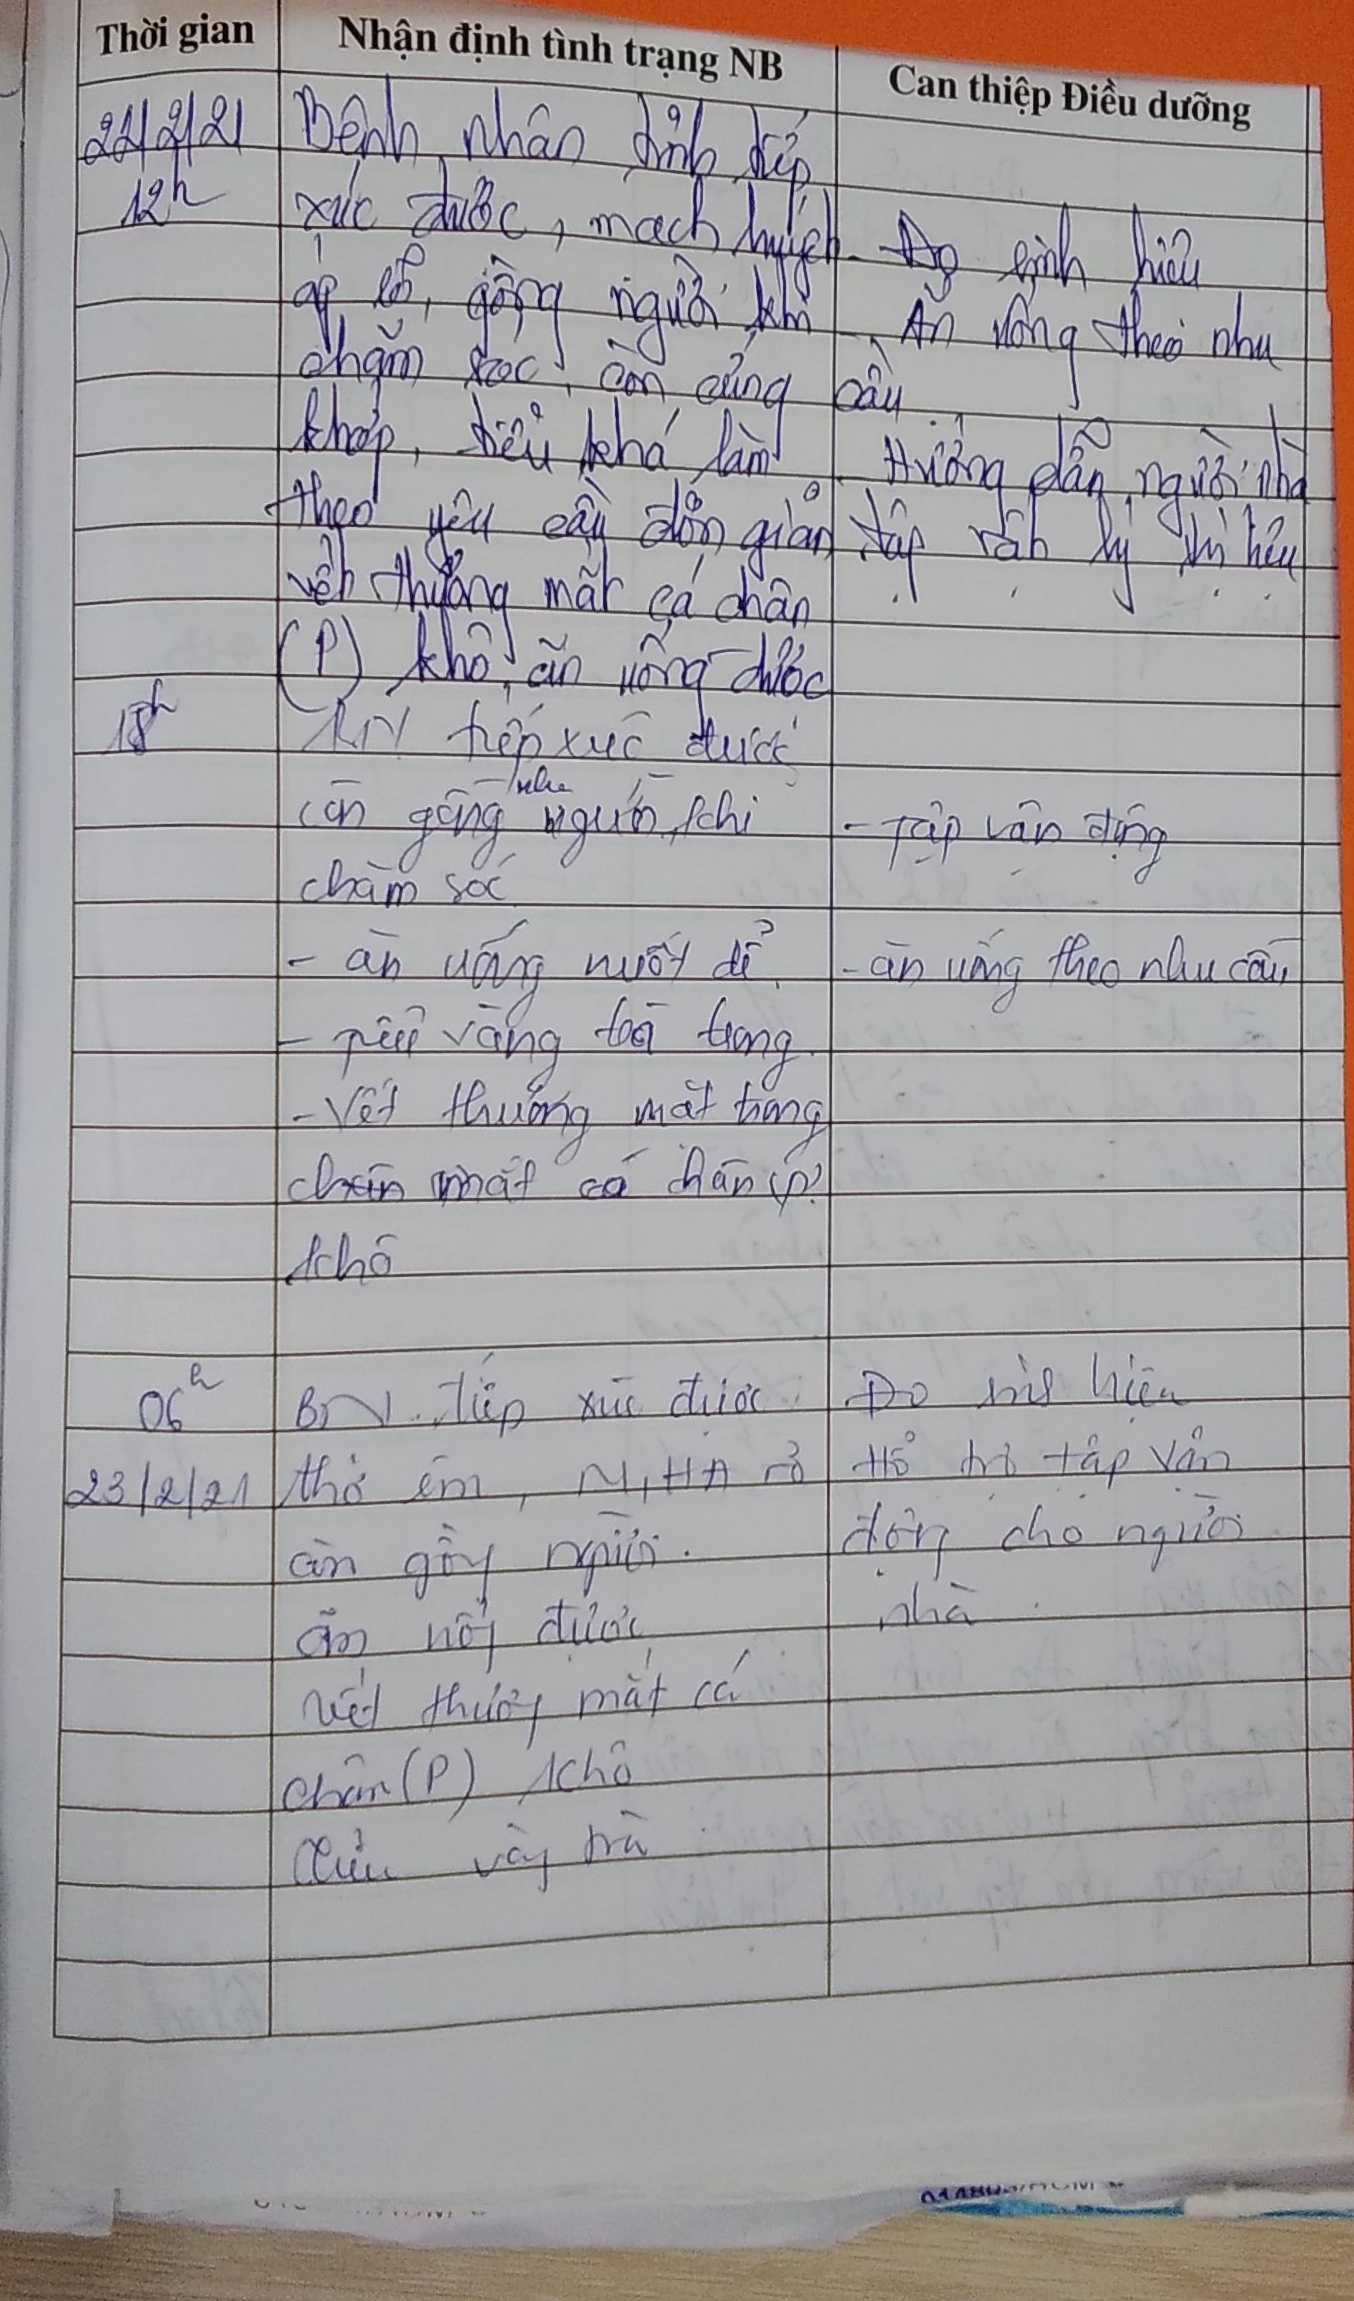 Thời gian
Nhận định tình trạng NB
Can thiệp Điều dưỡng
22/2/21
12h
Bệnh nhân tỉnh tiếp
xúc được, mạch huyết
áp rõ, gồng người khi
chăm sóc, còn cứng
khớp, tiểu khá làm
theo yêu cầu đơn giản
vết thương mắt cá chân
(P) khô, ăn uống được
- Đo sinh hiệu
- Ăn uống theo nhu
cầu
- Hướng dẫn người nhà
tập vật lý trị liệu
18h
BN tiếp xúc được
còn gồng nhẹ người khi
chăm sóc
- ăn uống nuốt dễ
- tiểu vàng trong
- Vết thương mắt trong
chân mắt cá chân (P)
khô
- Tập vận động
- ăn uống theo nhu cầu
06h
23/2/21
BN tiếp xúc được
thở êm, M, HA rõ
còn gồng người.
ăn uống được
vết thương mắt cá
chân (P) khô
tiểu vàng trà
Đo sinh hiệu
Hỗ trợ tập vận
động cho người
nhà